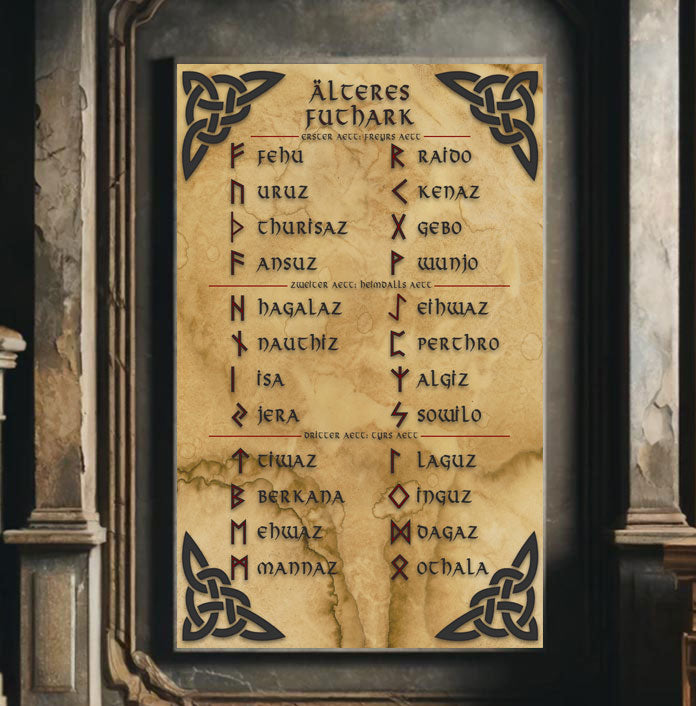 ÄLTERES
FUTHARK
ERSTER AETT: FREYRS AETT
ᚠ FEHU ᚱ RAIDO
ᚢ URUZ ᚲ KENAZ
ᚦ THURISAZ ᚷ GEBO
ᚨ ANSUZ ᚹ WUNJO
ZWEITER AETT: HEIMDALLS AETT
ᚺ HAGALAZ ᛇ EIHWAZ
ᚾ NAUTHIZ ᛈ PERTHRO
ᛁ ISA ᛉ ALGIZ
ᛃ JERA ᛊ SOWILO
DRITTER AETT: TYRS AETT
ᛏ TIWAZ ᛚ LAGUZ
ᛒ BERKANA ᛜ INGUZ
ᛖ EHWAZ ᛞ DAGAZ
ᛗ MANNAZ ᛟ OTHALA